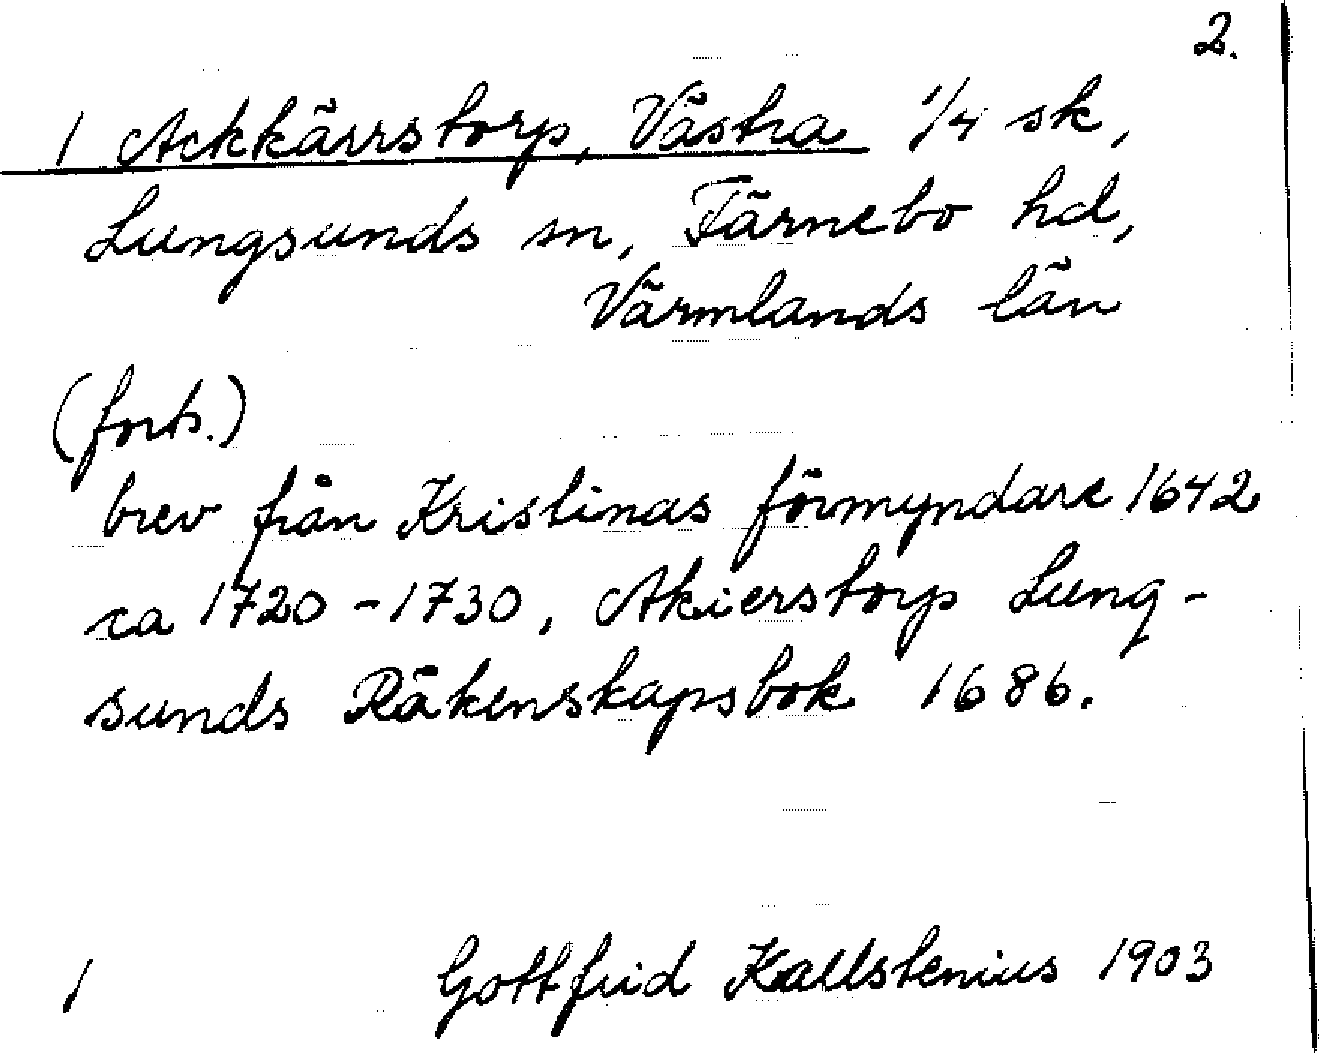 2.
1 Ackkärrstorp, Västra 1/4 sk,
Lungsunds sn, Färnebo hd,
Värmlands län
(forts.)
brev från Kristinas förmyndare 1642
ca 1720-1730, Akierstorp Lung-
sunds Räkenskapsbok 1686.
1 Gottfrid Kallstenius 1903